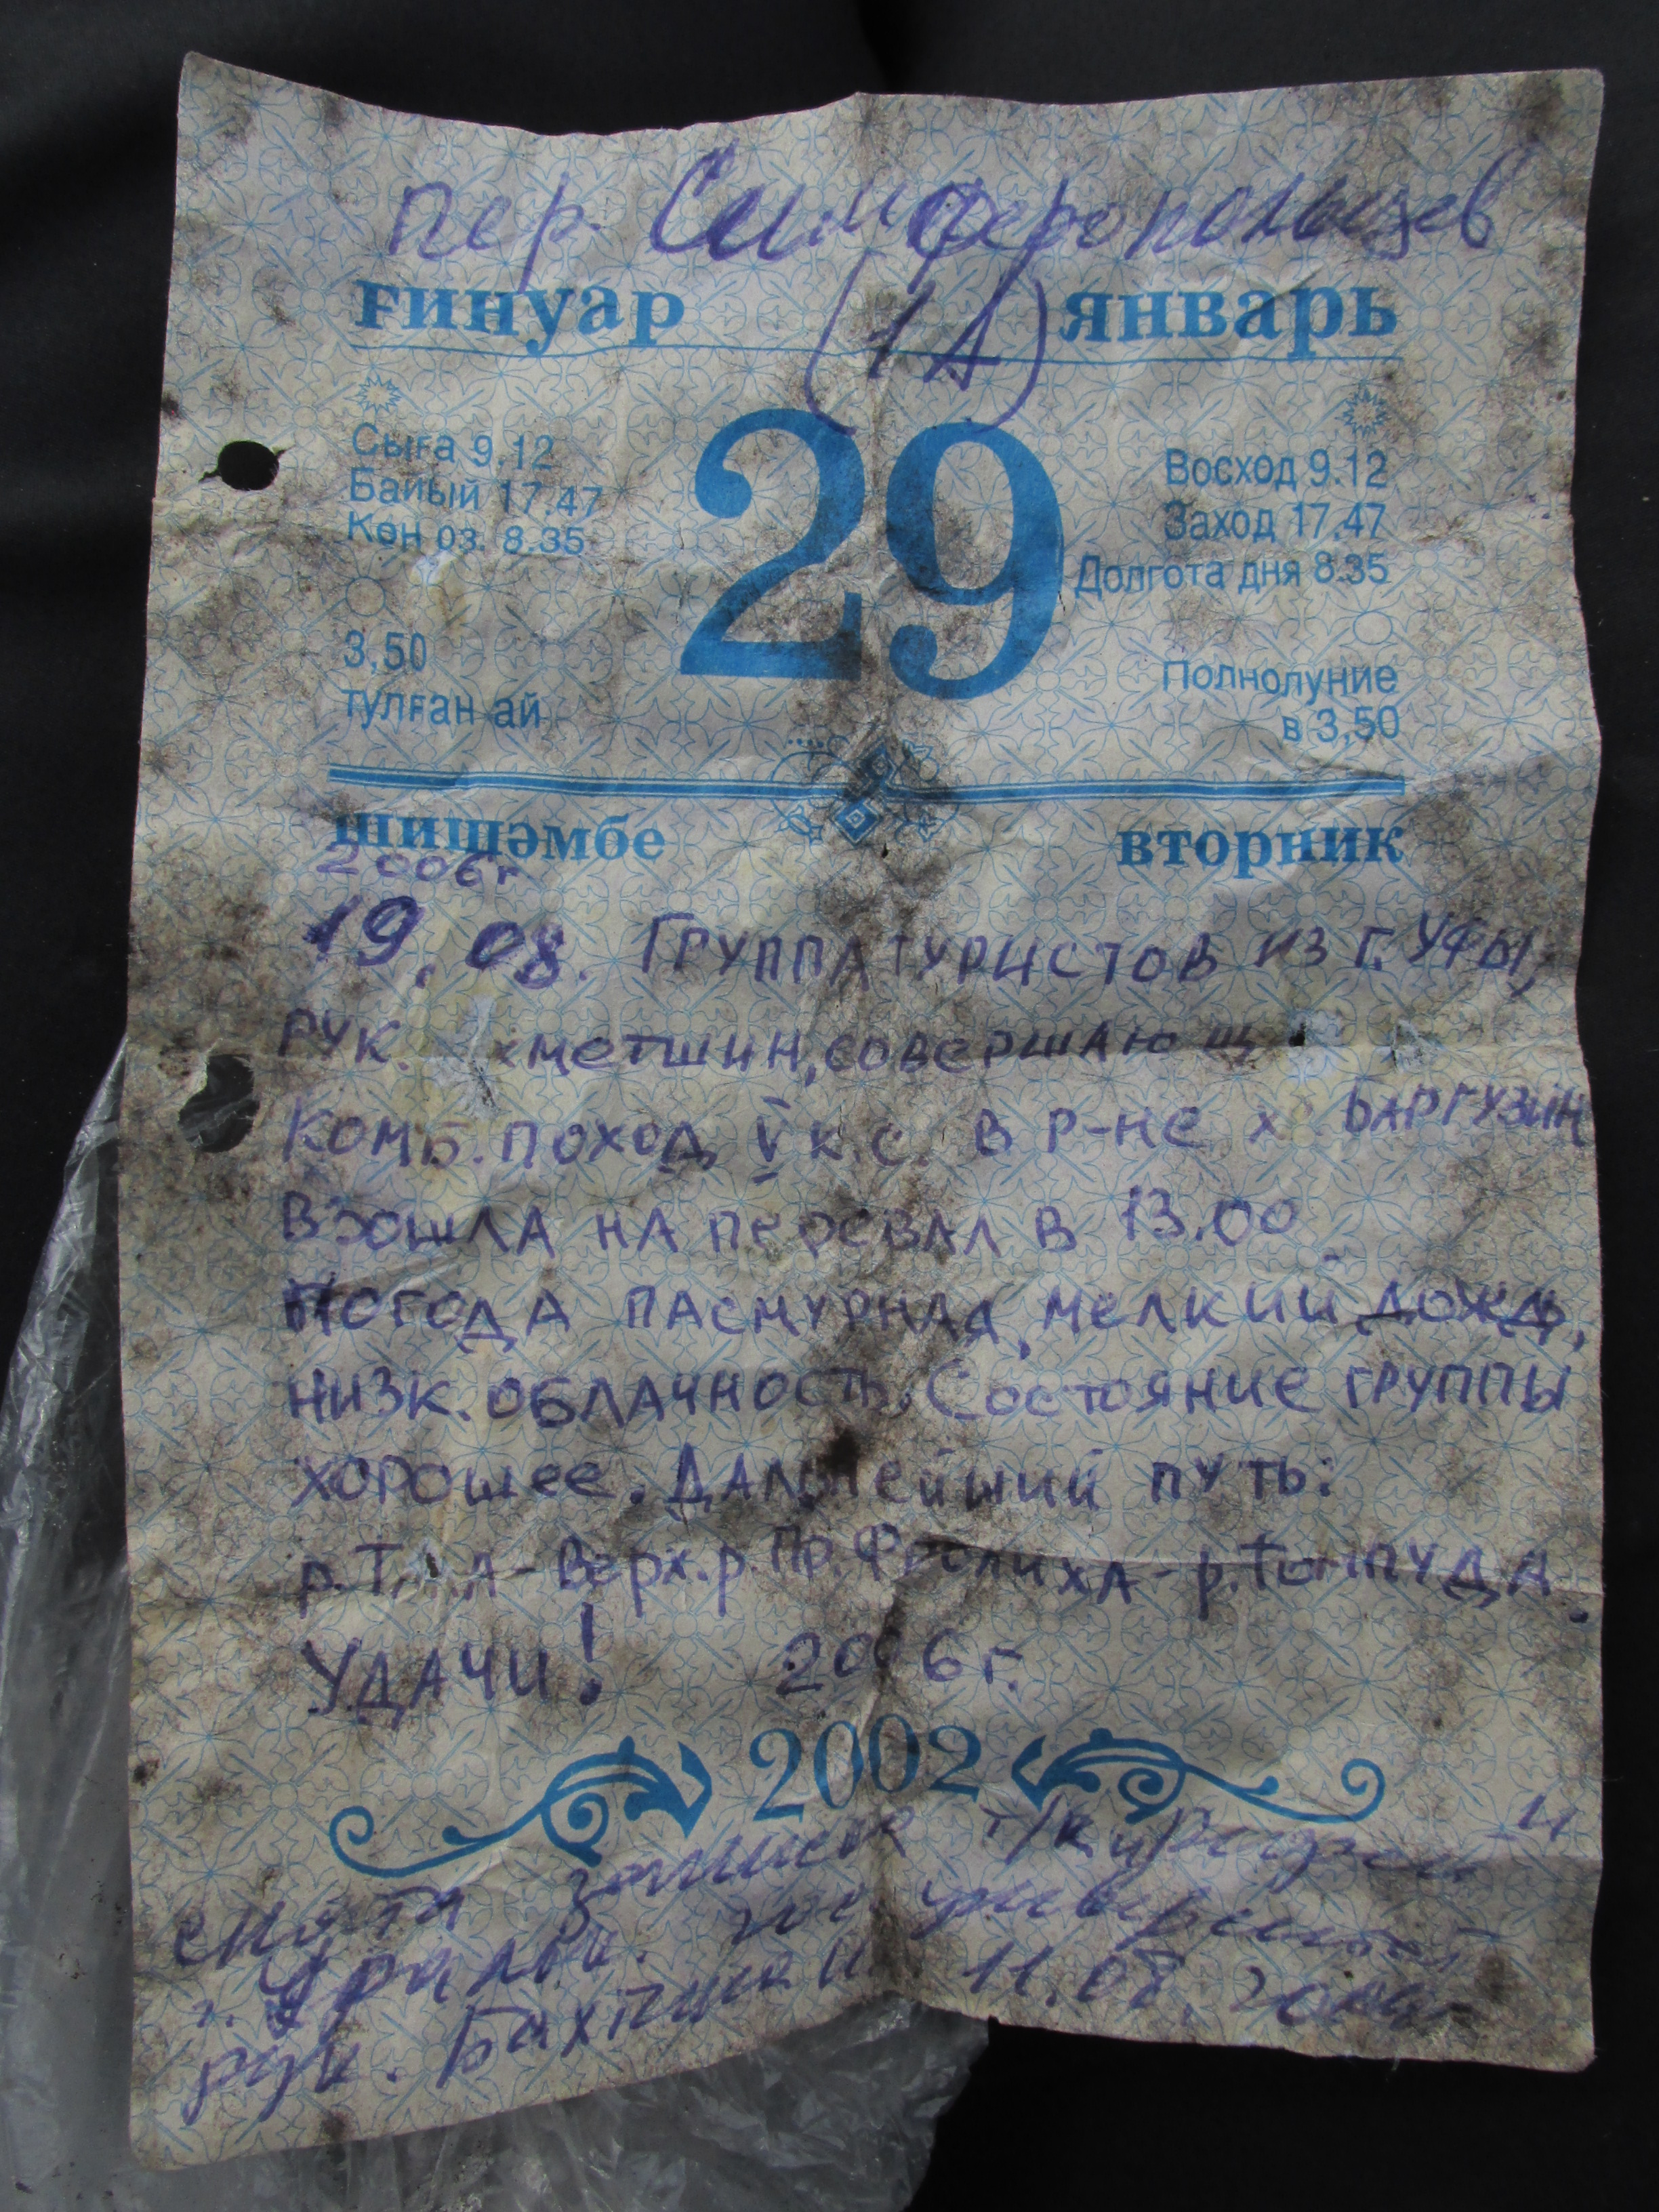 пер. Симферопольцев
ғинуар (1А) январь
29
Сыға 9.12
Байый 17.47
Көн оз. 8.35
3,50
тулған ай
Восход 9.12
Заход 17.47
Долгота дня 8.35
Полнолуние
в 3,50
шишәмбе вторник
2006г
19.08. Группа туристов из г. Уфы,
рук. хметшин, совершающ
комб. поход V к.с. в р-не х Баргузин
взошла на перевал в 13.00
Погода пасмурная, мелкий дождь,
низк. облачность. Состояние группы
хорошее. Дальнейший путь:
р. - Верх. р. Пр. Фролиха - р. Томпуда.
Удачи! 2006г.
2002
снята записка т/к
г. гос университет
рук. 11.08.